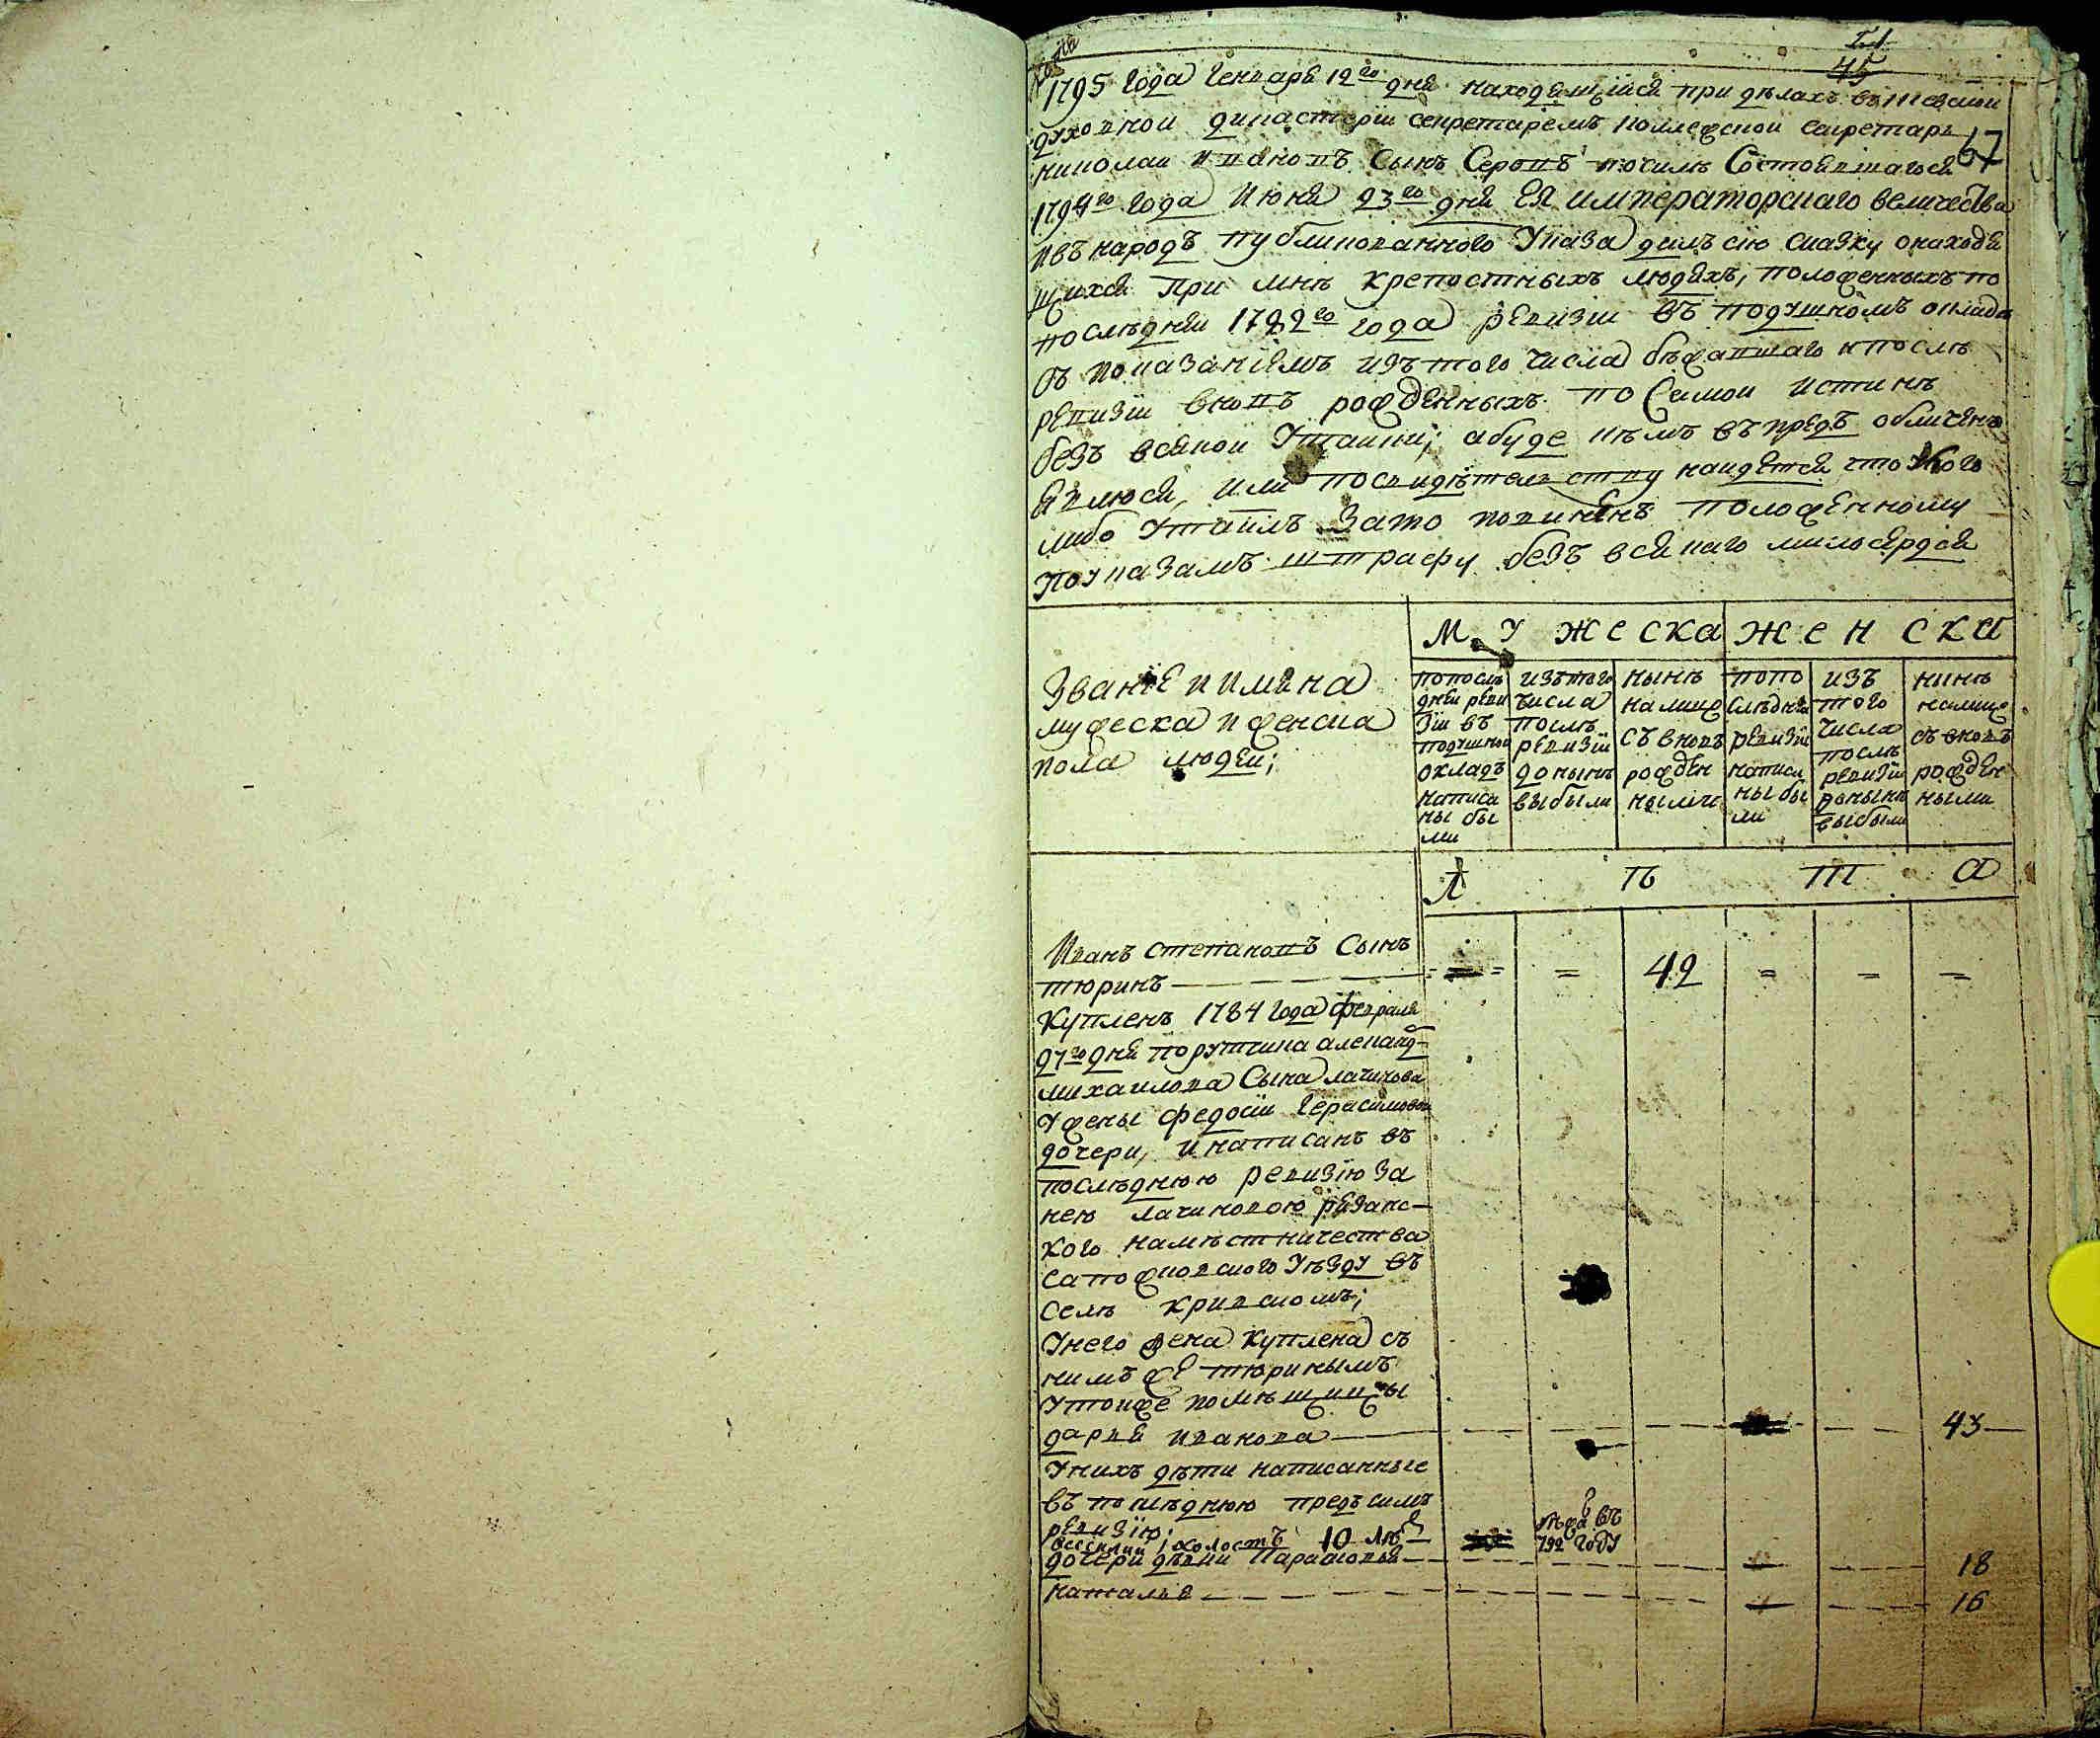 45
67
1795 года генваря 12го дня находящийся при делахъ въ
духовной дикастерии секретаремъ коллежской секретарь
николай ивановъ сынъ Серовъ по силе Состоявшагося
1794го года июня 23го дня ЕЯ императорскаго величества
ивъ народъ публикованного Указа далъ сию сказку онаходя
щихся при мне крепостныхъ людяхъ, положенныхъ по
последней 1782го года ревизии въ подушномъ окладе
съ показаниемъ изътого числа бежавшаго ипосле
ревизии вновь рожденныхъ по Самой истине
безъ всякой Утайки; абуде кемъ въпредь обличенъ
явлюся, или посвидетельству найдется что кого
либо Утаилъ Зато повиненъ положенному
поУказамъ штрафу безъ всякаго милосердия
Звание и имяна
мужеска и женска
пола людей;
МУЖЕСКА ЖЕНСКА
попосле
дней реви
зии въ
подушной
окладъ
написа
ны бы
ли
изътого
числа
после
ревизии
доныне
выбыли
ныне
налицо
съ вновь
рожден
ными
попо
следней
ревизии
написа
ны бы
ли
изъ
того
числа
после
ревизии
доныне
выбыли
ныне
налицо
съ вновь
рожден
ными
Л ѣ т а
Иванъ степановъ Сынъ
тюринъ 42
Купленъ 1784 года февраля
27го дня порутчика александ
михаилова Сына лачинова
Ужены федосии герасимовой
дочери, инаписанъ въ
последнюю ревизию за
нею лачиновою резанс-
кого наместничества
сапожковского Уезду въ
селе кривскомъ;
Унего жена куплена съ
нимъ же тюринымъ
Утойже помещицы
дарья иванова 43
Унихъ дети написанные
въ последнюю предъ симъ
ревизию;
василий холостъ 10 ле
792 году
дочери девки Парасковья 18
наталья 16